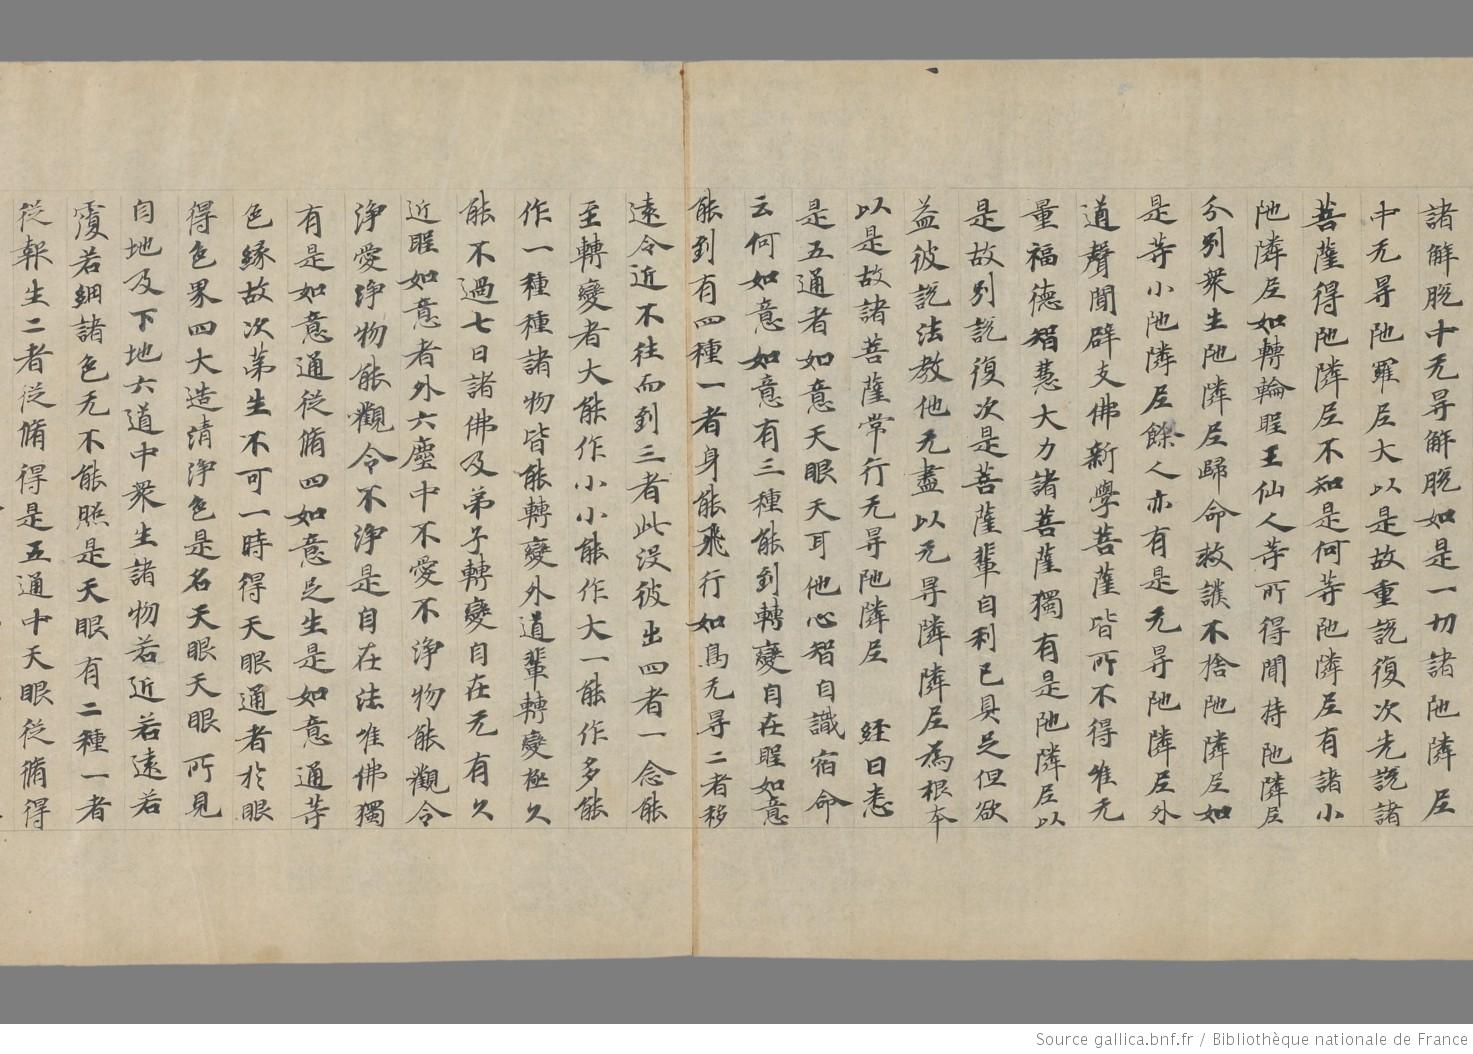 諸解脱中无㝵解脱如是一切諸陁隣尼
中无㝵陁羅尼大以是故重説復次先説諸
菩薩得陁隣尼不知是何等陁隣尼有諸小
陁隣尼如轉輪聖王仙人等所得聞持陁隣尼
分別衆生陁隣尼歸命救護不捨陁隣尼如
是等小陁隣尼餘人亦有是无㝵陁隣尼外
道聲聞辟支佛新學菩薩皆所不得唯无
量福德智慧大力諸菩薩獨有是陁隣尼以
是故別説復次是菩薩輩自利已具足但欲
益彼説法教他无盡以无㝵隣隣尼為根本
以是故諸菩薩常行无㝵陁隣尼 經曰悉
是五通者如意天眼天耳他心智自識宿命
云何如意如意有三種能到轉變自在聖如意
能到有四種一者身能飛行如鳥无㝵二者移
遠令近不往而到三者此没彼出四者一念能
至轉變者大能作小小能作大一能作多能
作一種種諸物皆能轉變外道輩轉變極久
能不過七日諸佛及弟子轉變自在无有久
近聖如意者外六塵中不愛不淨物能觀令
淨愛淨物能觀令不淨是自在法唯佛獨
有是如意通従脩四如意足生是如意通等
色緣故次第生不可一時得天眼通者於眼
得色界四大造清淨色是名天眼天眼所見
自地及下地六道中衆生諸物若近若遠若
覆若細諸色无不能照是天眼有二種一者
従報生二者従脩得是五通中天眼従脩得